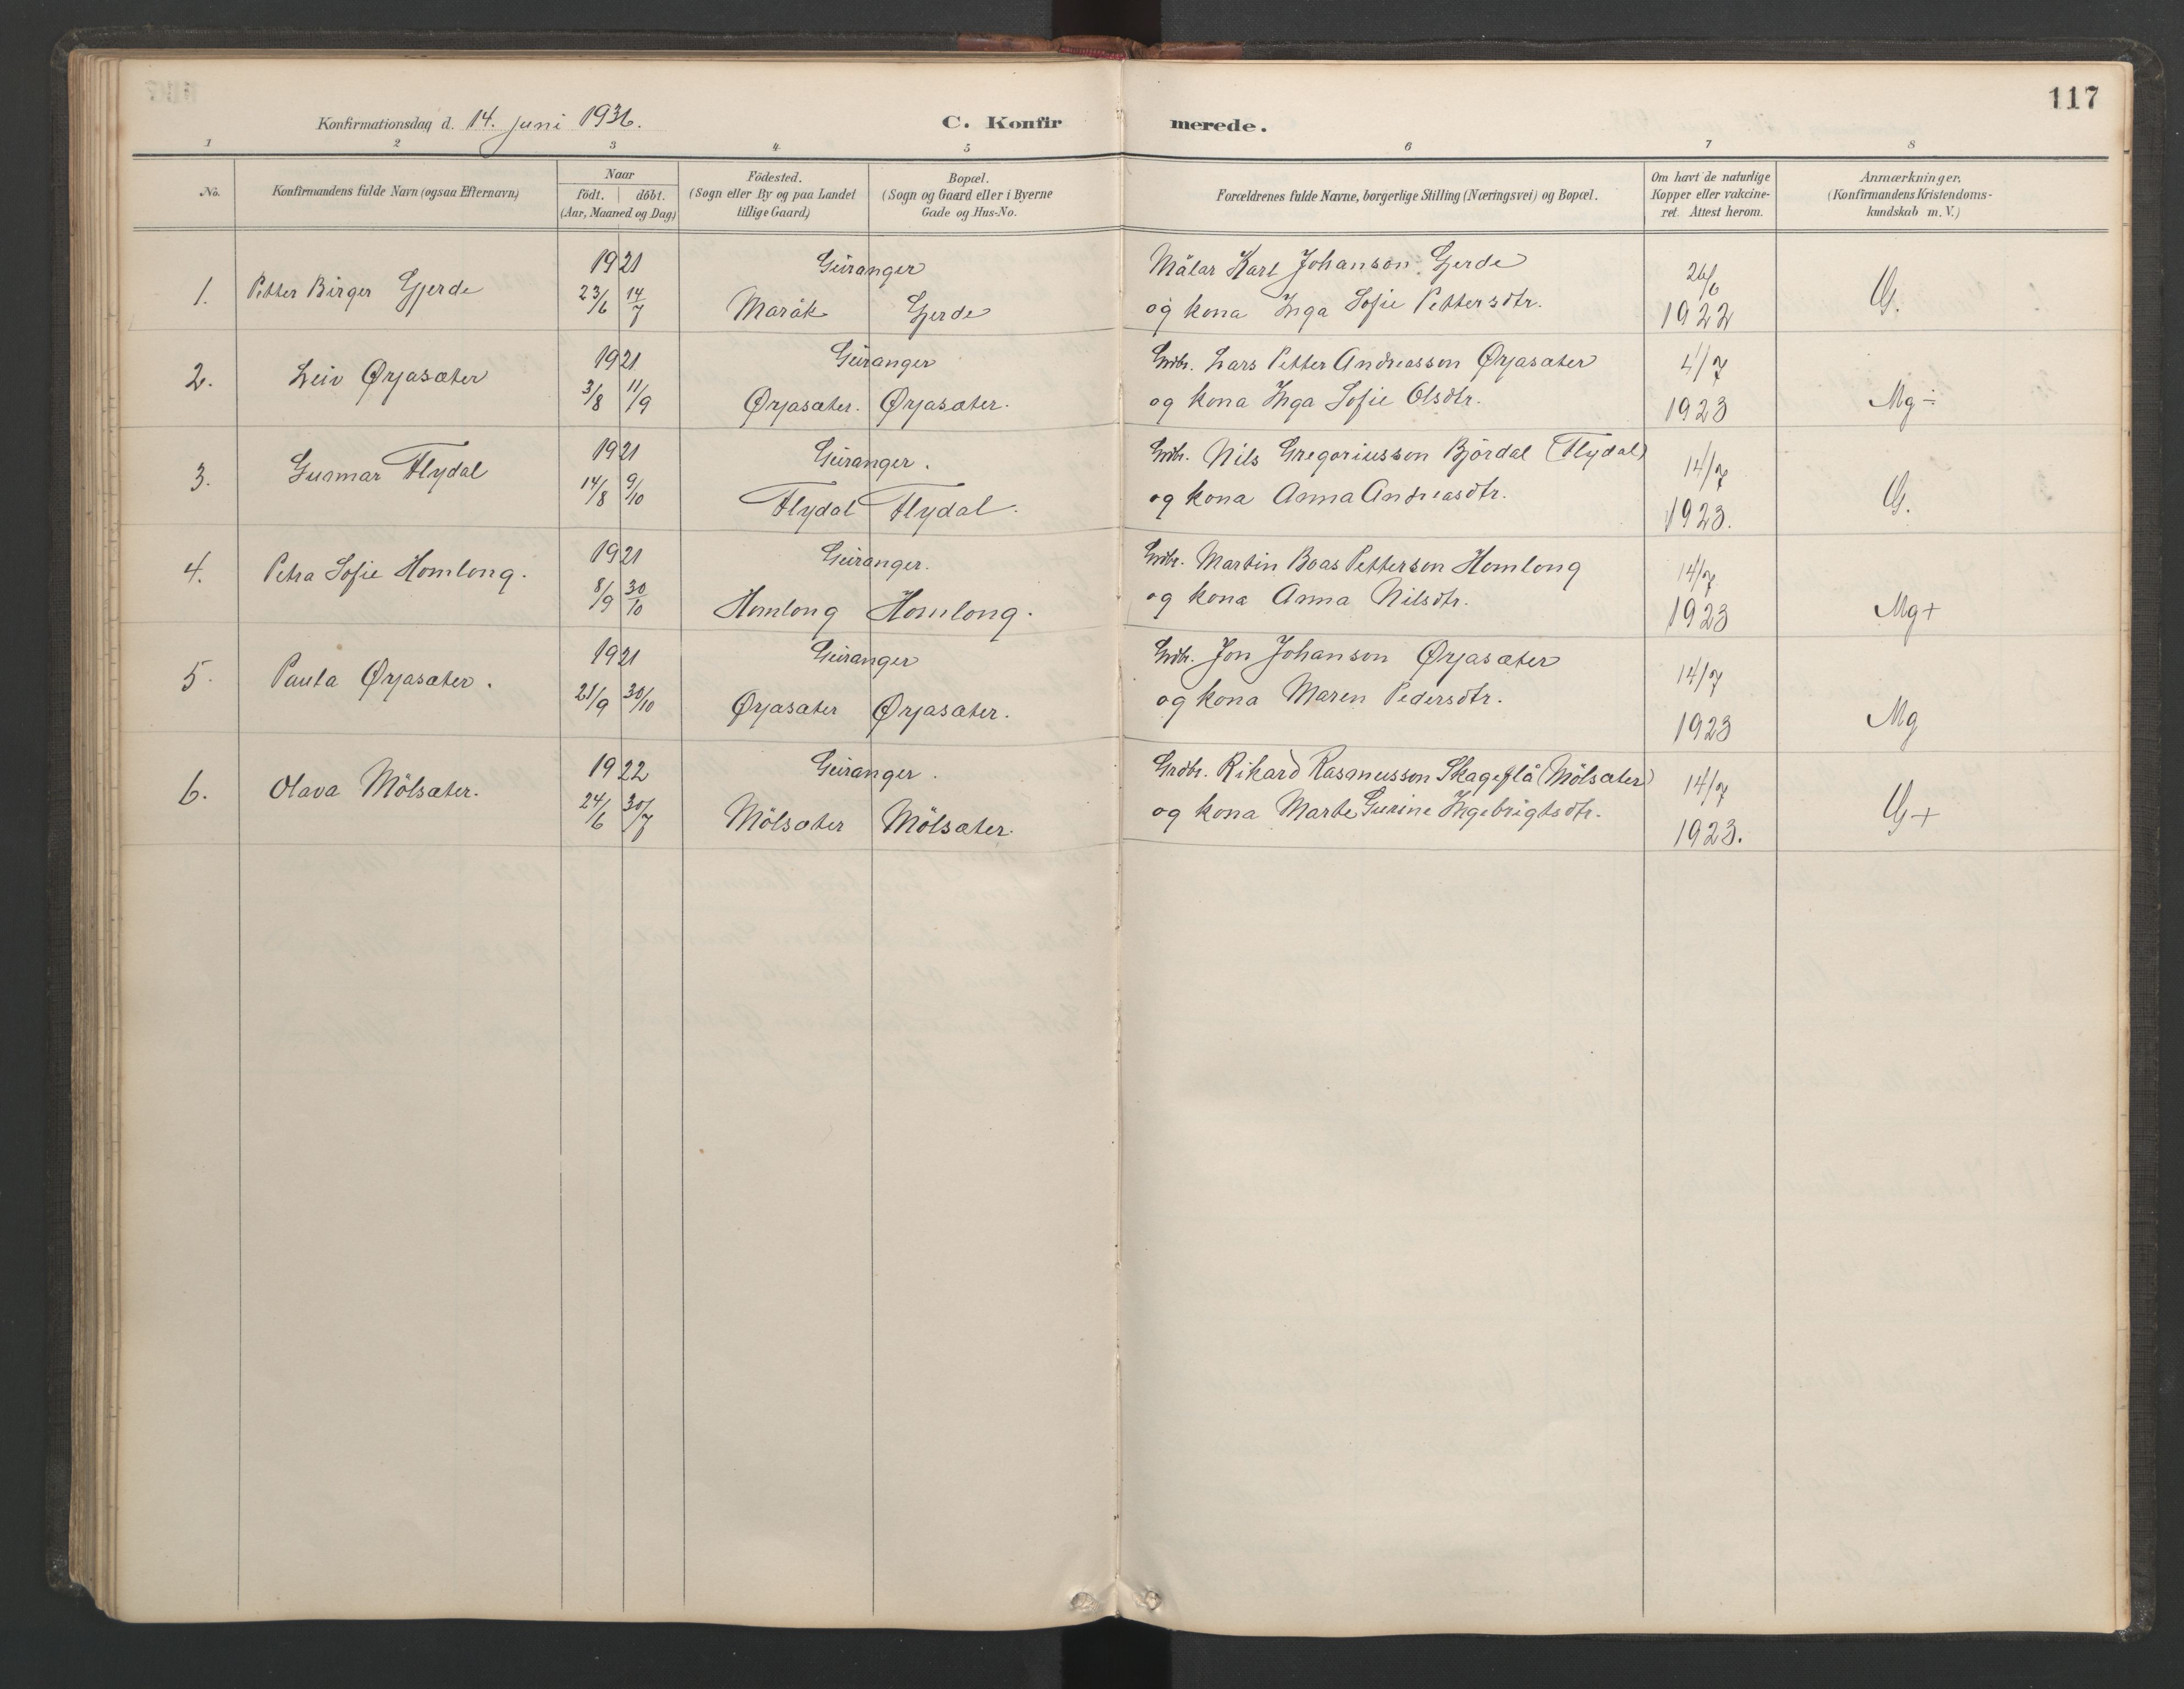 117
Konfirmationsdag d. 14. juni 1936.
C. Konfirmerede.
1 2 3 4 5 6 7 8
No.
Konfirmandens fulde Navn (ogsaa Efternavn)
Naar
födt. | döbt.
(Aar, Maaned og Dag)
Födested.
(Sogn eller By og paa Landet
tillige Gaard)
Bopæl.
(Sogn og Gaard eller i Byerne
Gade og Hus-No.
Forældrenes fulde Navne, borgerlige Stilling (Næringsvei) og Bopæl.
Om havt de naturlige
Kopper eller vakcine-
ret. Attest herom.
Anmærkninger.
(Konfirmandens Kristendoms-
kundskab m. V.)
1921 Geiranger Målar Karl Johanson Gjerde 26/6
1. Petter Birger Gjerde 23/6 14/7 Maråk Gjerde og kona Inga Sofie Pettersdtr. 1922 G.
1921 Geiranger Grdbr. Lars Petter Andreasson Ørjasæter 4/7
2. Leiv Ørjasæter 3/8 11/9 Ørjasæter. Ørjasæter. og kona Inga Sofie Olsdtr. 1923 Mg÷
1921 Geiranger. Grdbr. Nils Gregoriusson Bjørdal (Flydal) 14/7
3. Gunnar Flydal 14/8 9/10 Flydal Flydal. og kona Anna Andreasdtr. 1923. G.
1921 Geiranger. Grdbr. Martin Boas Petterson Homlong 14/7
4. Petra Sofie Homlong. 8/9 30/10 Homlong Homlong. og kona Anna Nilsdtr. 1923 Mg+
1921 Geiranger Grdbr. Jon Johanson Ørjasæter 14/7
5. Paula Ørjasæter. 21/9 30/10 Ørjasæter Ørjasæter. og kona Maren Pedersdtr. 1923 Mg
1922 Geiranger. Grdbr. Rikard Rasmusson Skageflå (Mölsæter) 14/7
6. Olava Mölsæter. 24/6 30/7 Mölsæter Mölsæter. og kona Marte Gurine Ingebrigtsdtr. 1923. G+